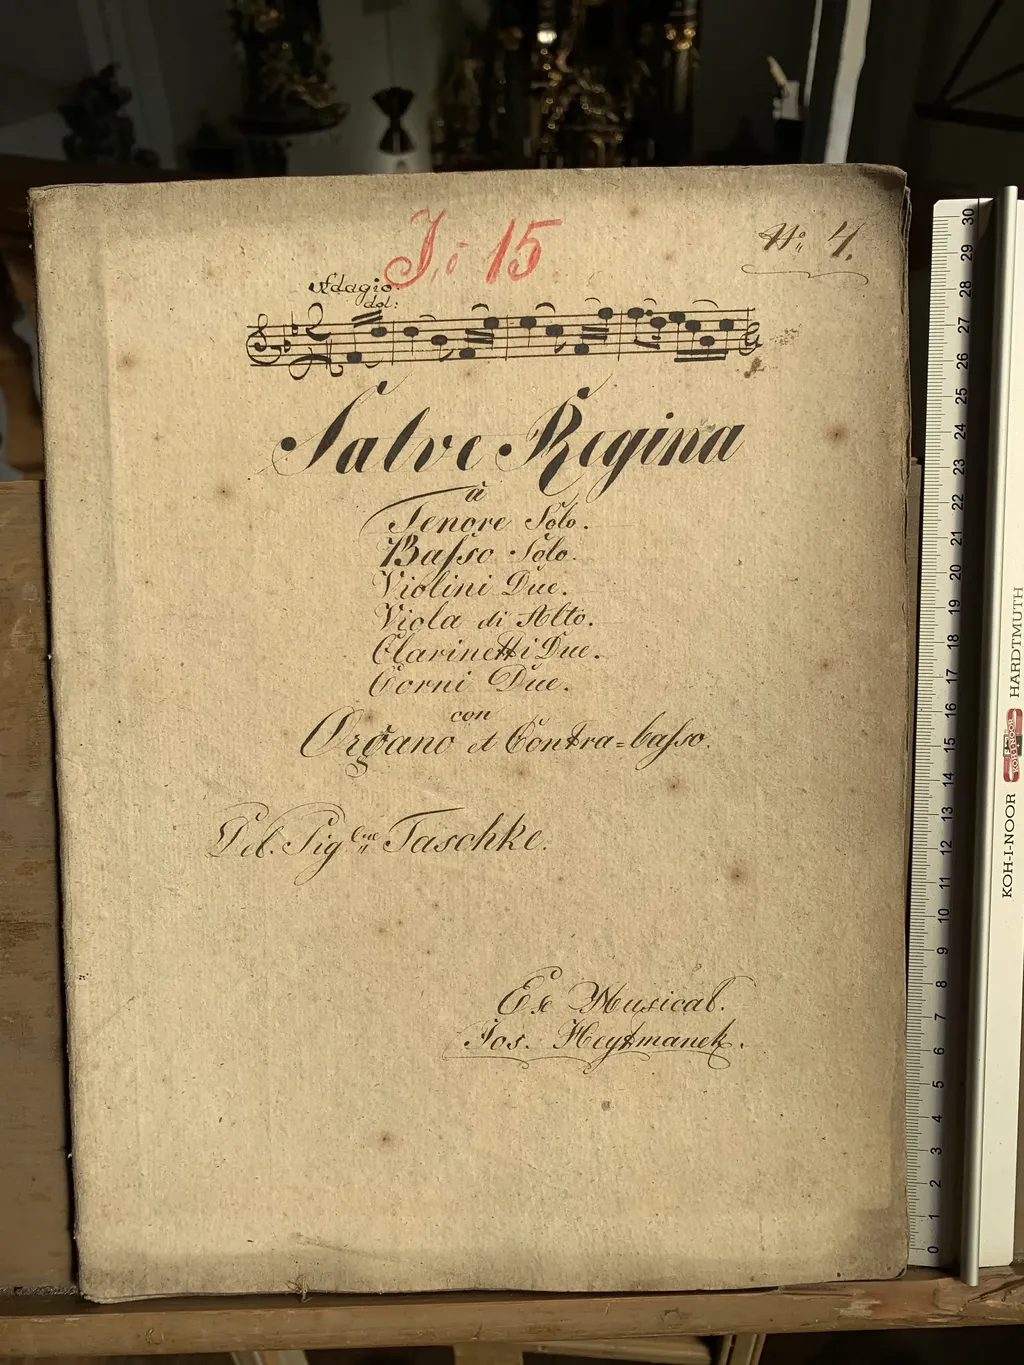 J. 15
No 4.
Adagio.
dol:
Salve Regina
à
Tenore Solo.
Baſso Solo.
Violini Due.
Viola di Alto.
Clarinetti Due.
Corni Due.
con
Organo et Contra=baſso.
Del. Sig Taschke.
Ex Musical.
Jos. Heytmanek.
30
29
28
27
26
25
24
23
22
21
20
19
18
17
16
15
14
13
12
11
10
9
8
7
6
5
4
3
2
1
0
KOH-I-NOOR HARDTMUTH
KOH-I-NOOR